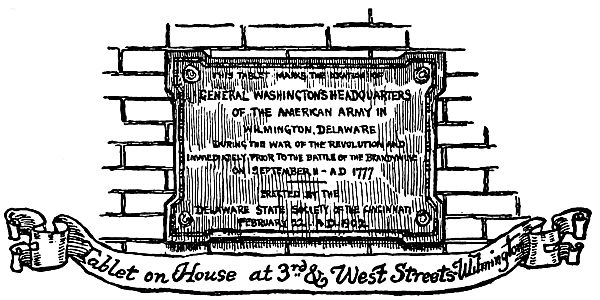 THIS TABLET MARKS THE LOCATION OF
GENERAL WASHINGTON'S HEADQUARTERS
OF THE AMERICAN ARMY IN
WILMINGTON, DELAWARE
DURING THE WAR OF THE REVOLUTION AND
IMMEDIATELY PRIOR TO THE BATTLE OF THE BRANDYWINE
ON SEPTEMBER 11 - A.D 1777
ERECTED BY THE
DELAWARE STATE SOCIETY OF THE CINCINNATI
FEBRUARY 22 A.D. 1902
Tablet on House at 3rd & West Streets Wilmington